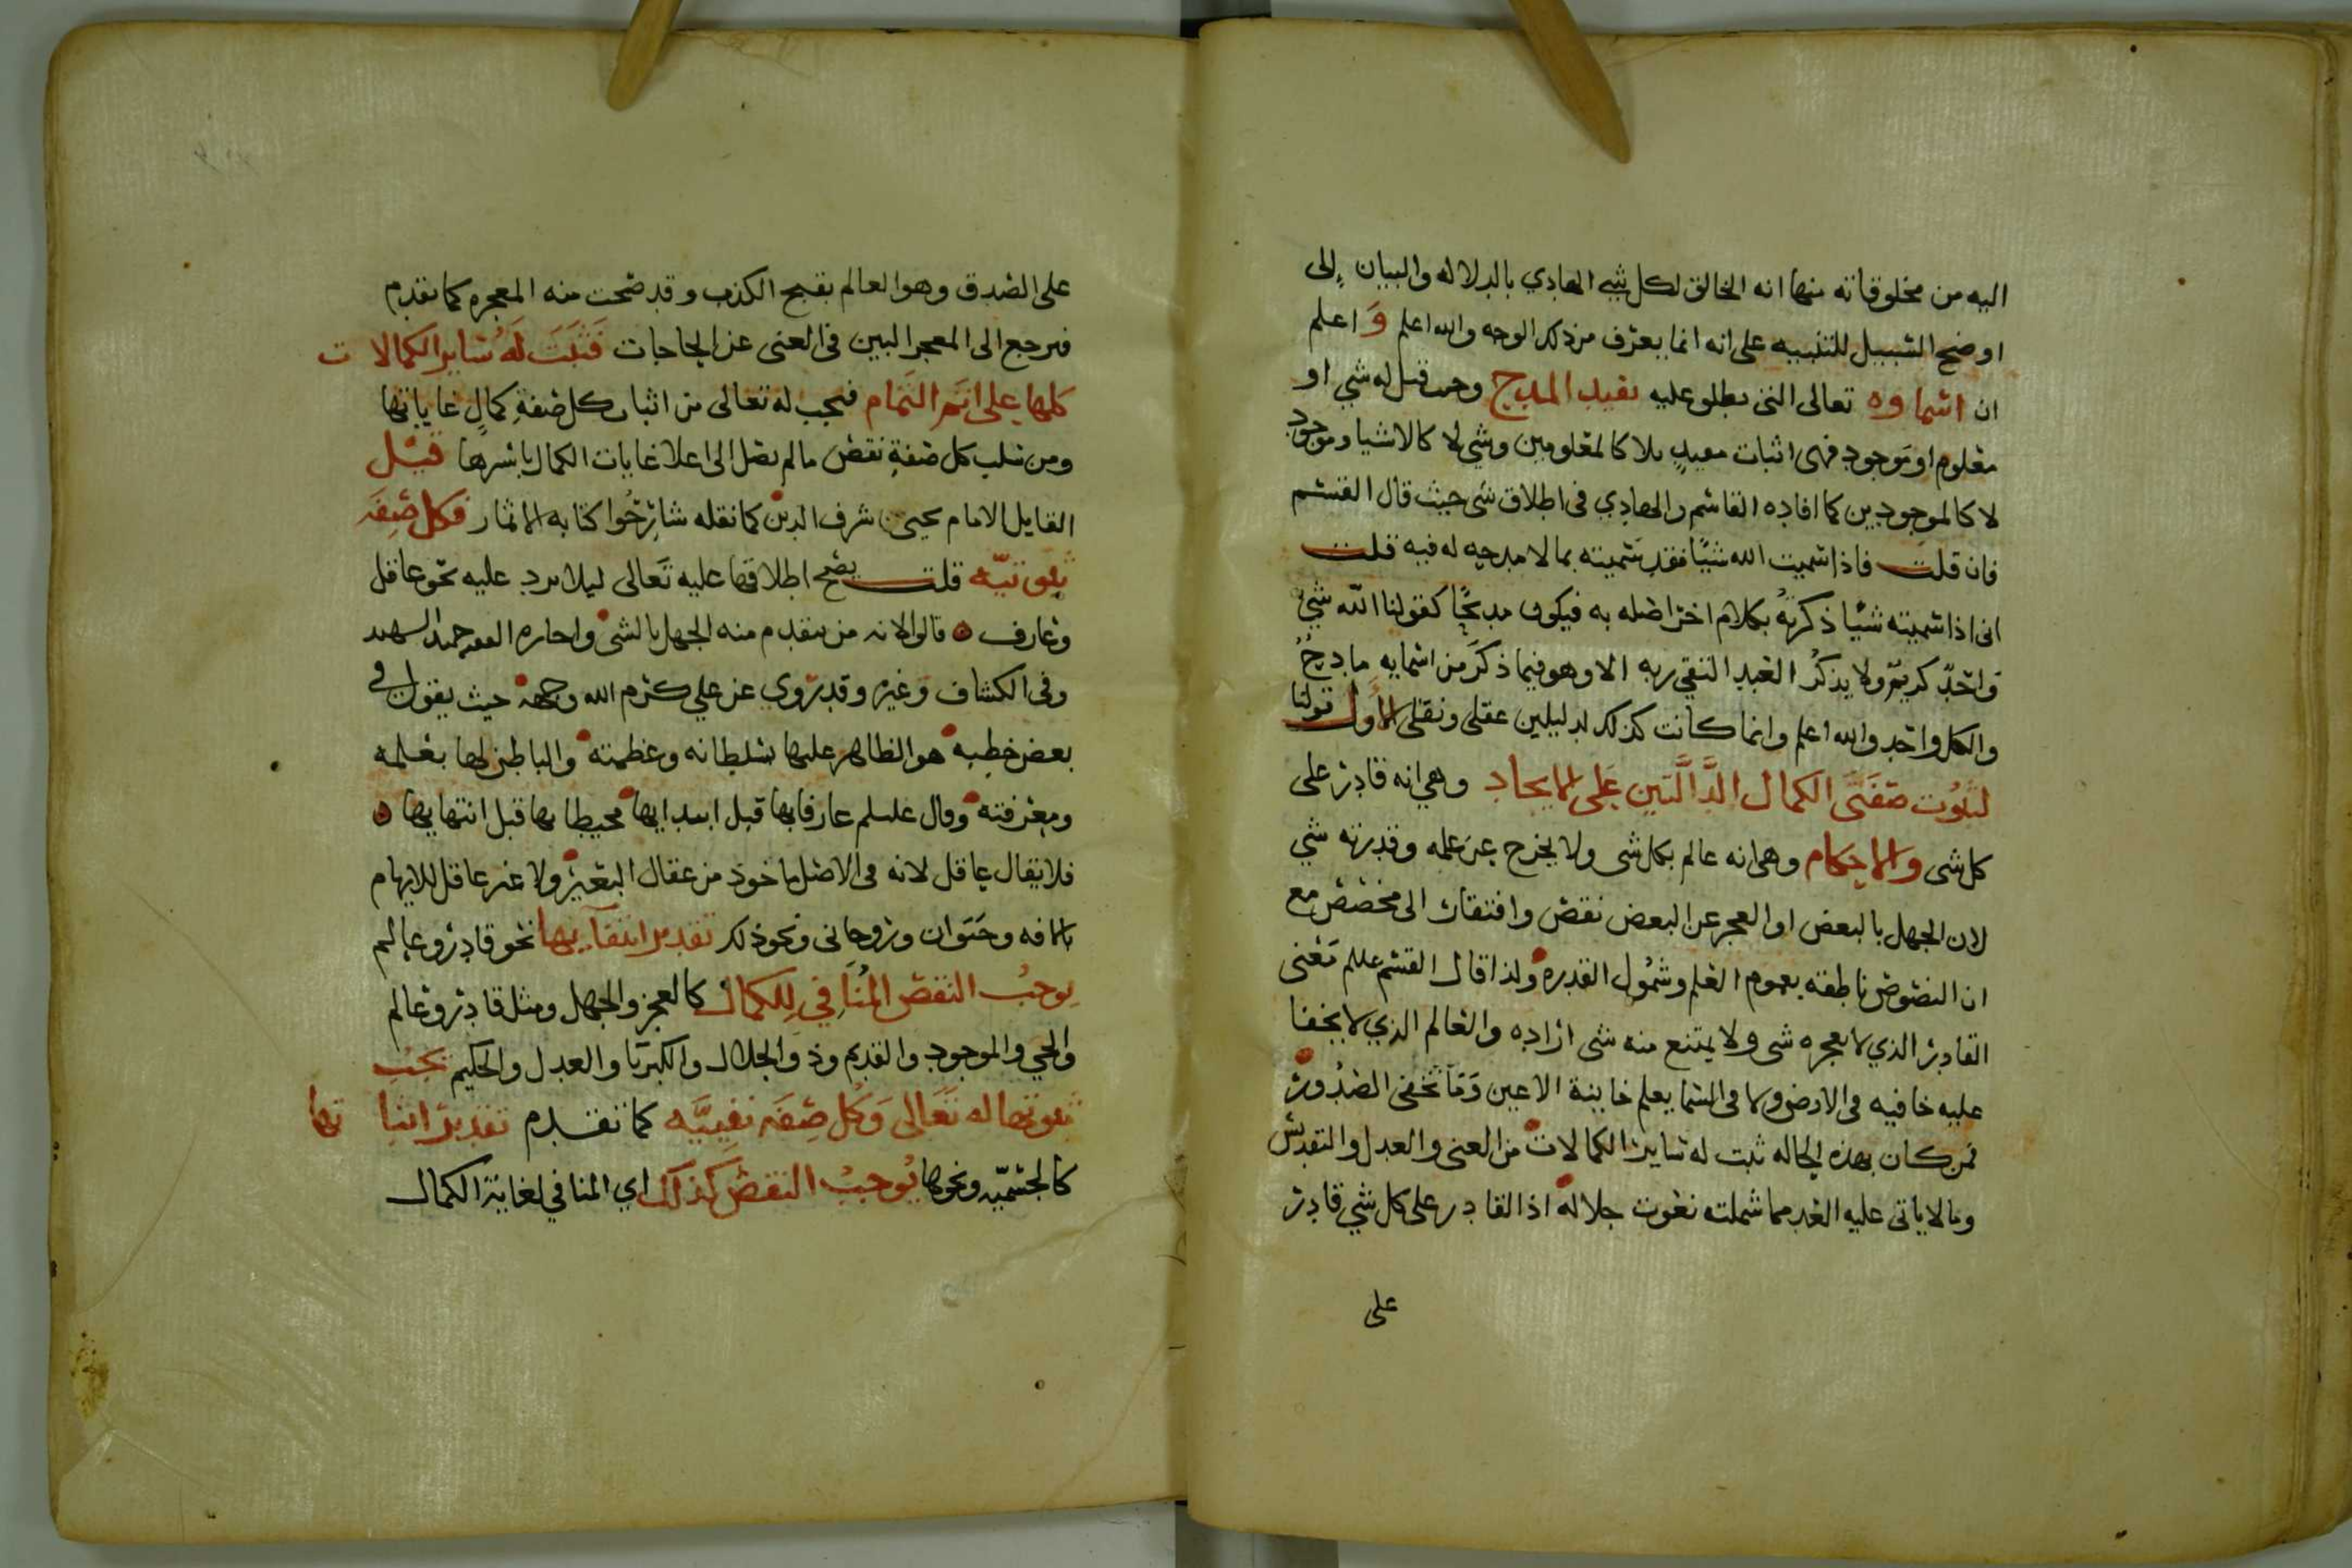 اليه من مخلوقاته منها انه الخالق لكل شيء الهادي بالدلاله والبيان إلى
اوضح السبيل للتنبيه على انه انما يعرف من ذلك الوجه والله اعلم وَ اعلم
ان اسماوه تعالى التي تطلق عليه تفيد المدح وحيث قيل له شي او
معلوم او موجود فهي اثبات معبد بلا كالمعلومين وشي لا كالاشيا وموجود
لا كالموجودين كما افاده القاسم والهادي في اطلاق شي حيث قال القسم
فان قلت فاذا سميت الله شيًا فقد سميته بما لا مدحه له فيه قلت
اني اذا سميته شيًا ذكرته بكلام اخر اصله به فيكون مدحًا كقولنا الله شي
وَاحدٌ كريمٌ ولا يذكرُ العبد التقي ربه الا وهو فيما ذكَر من اسمايه مادحٌ
والكل واحد والله اعلم وانما كانت كذلك لدليلين عقلي ونقلي الأول قولنا
لثبُوت صفتَي الكمال الدَّالَّتَين عَلى الايجاد وهي انه قادر على
كل شى والاحكام وهي انه عالم بكل شى ولا يخرج عن علمه وقدرته شي
لان الجهل بالبعض او العجز عن البعض نقص وافتقار الى مخصص مع
ان النصوص ناطقه بعموم العلم وشمُول القدره ولذا قال القسم عللم مَعْنى
القادر الذي لا يعجزه شى ولا يمتنع منه شى اراده والعالم الذي لا يخفا
عليه خافيه في الارض ولا في السما يعلم خاينة الاعين وَمَا تخفى الصُدُور
فمن كان بهذه الحاله ثبت له ساير الكمالات من الغنى والعدل والتقديس
وما لا ياتي عليه العد مما شملته نعوت جلاله اذ القادر على كل شي قادر
على
على الصدق وهو العالم بقبح الكذب وقد صحت منه المعجزه كما تقدم
فيرجع الى المعجز البين في الغنى عن الحاجات فَثَبَتَ لَهُ سَاير الكمالات
كلها على اتمِ التمَام فيجب له تعالى من اثبات كل صفةِ كمالٍ غاياتها
ومن سَلب كل صفةِ نقصٍ ما لم يصل الى اعلا غايات الكمال باسرها قيل
القايل الامام يحيى بن شرف الدين كما نقله شارحُوا كتابه الاثمار فكل صفَه
ثبوتيّه قلت يصح اطلاقها عليه تعَالى ليلا يرد عليه نحو عاقل
وعارف قالوا لانه من يتقدم منه الجهل بالشي واجازه الفقيه حميد الشهيد
وفي الكشاف وغيره وقد رُوي عن علي كرم الله وجهه حيث يقول في
بعض خطبه هو الظاهر عليها بسلطانه وعظمته والباطن لها بعلمه
ومعرفته وقال عليلم عارفا بها قبل ابتدايها محيطا بها قبل انتهايها
فلا يقال عاقل لانه في الاصل ماخوذ من عقال البعير ولا غير عاقل للايهام
بالافه وحَيَوان وروحاني ونحو ذلك تقدير انتفآيها نحو قادر وعالم
يوجبُ النقص المُنَافي لِلكمال كالعجز والجهل ومثل قادر وعالم
والحي والموجود والقديم وذو الجلال والكبريا والعدل والحكيم يَجِبُ
ثبوتها له تَعَالى وَكُل صفَه نفييَّه كما تقدم تقدير اثباتها
كالجسميّه ونحوها يُوجبُ النقص كذلك اي المنافي لغاية الكمال